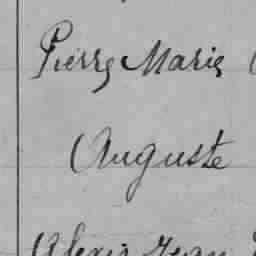 Pierre Marie
Auguste
Alexis Jean